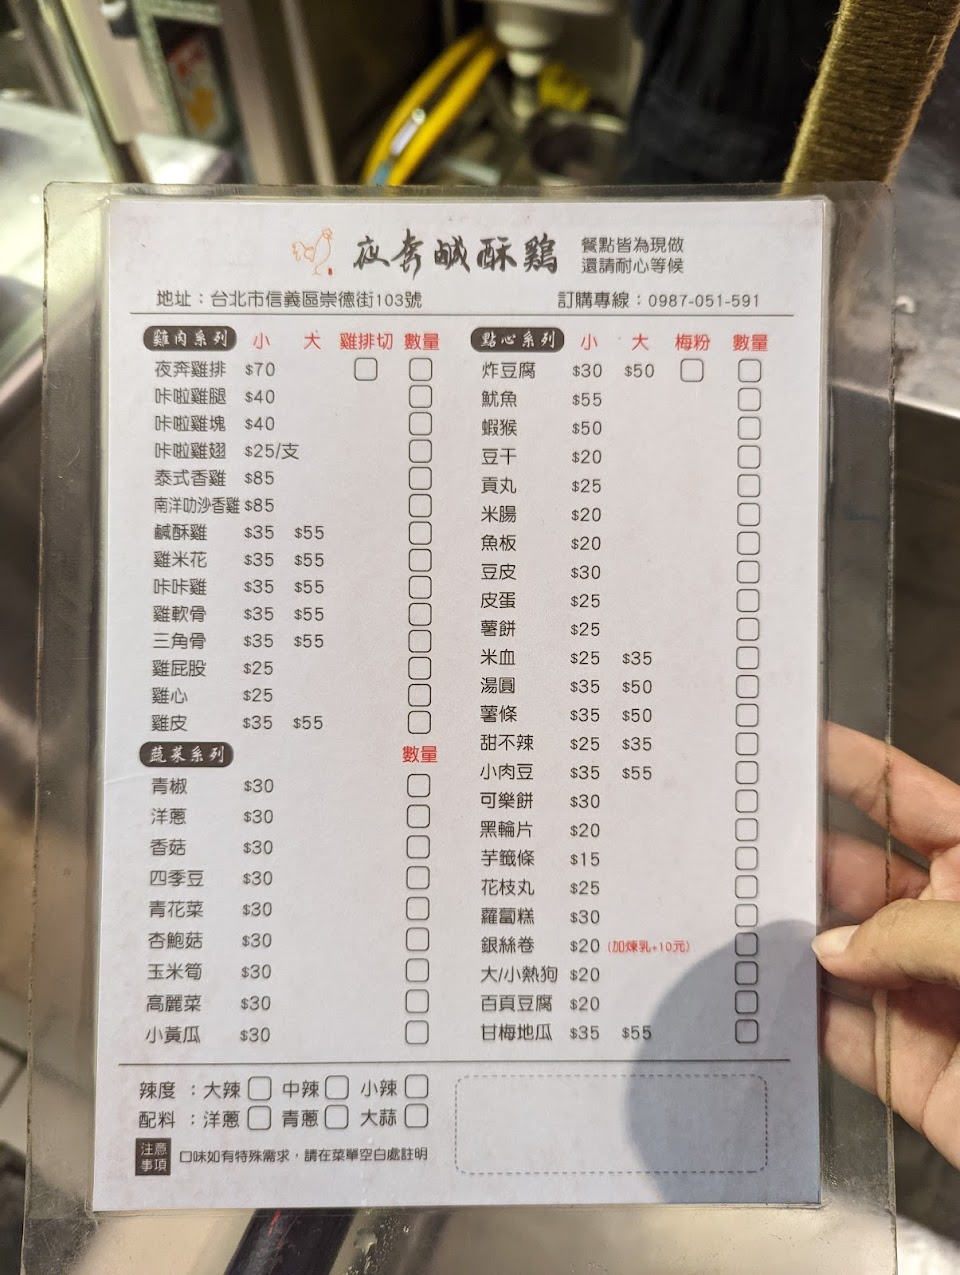 夜奔鹹酥鷄
餐點皆為現做
還請耐心等候
地址：台北市信義區崇德街103號
訂購專線：0987-051-591
雞肉系列 小 大 雞排切 數量
夜奔雞排 $70
咔啦雞腿 $40
咔啦雞塊 $40
咔啦雞翅 $25/支
泰式香雞 $85
南洋叻沙香雞 $85
鹹酥雞 $35 $55
雞米花 $35 $55
咔咔雞 $35 $55
雞軟骨 $35 $55
三角骨 $35 $55
雞屁股 $25
雞心 $25
雞皮 $35 $55
蔬菜系列 數量
青椒 $30
洋蔥 $30
香菇 $30
四季豆 $30
青花菜 $30
杏鮑菇 $30
玉米筍 $30
高麗菜 $30
小黃瓜 $30
點心系列 小 大 梅粉 數量
炸豆腐 $30 $50
魷魚 $55
蝦猴 $50
豆干 $20
貢丸 $25
米腸 $20
魚板 $20
豆皮 $30
皮蛋 $25
薯餅 $25
米血 $25 $35
湯圓 $35 $50
薯條 $35 $50
甜不辣 $25 $35
小肉豆 $35 $55
可樂餅 $30
黑輪片 $20
芋籤條 $15
花枝丸 $25
蘿蔔糕 $30
銀絲卷 $20 (加煉乳+10元)
大/小熱狗 $20
百頁豆腐 $20
甘梅地瓜 $35 $55
辣度 ：大辣 中辣 小辣
配料 ：洋蔥 青蔥 大蒜
注意
事項
口味如有特殊需求，請在菜單空白處註明